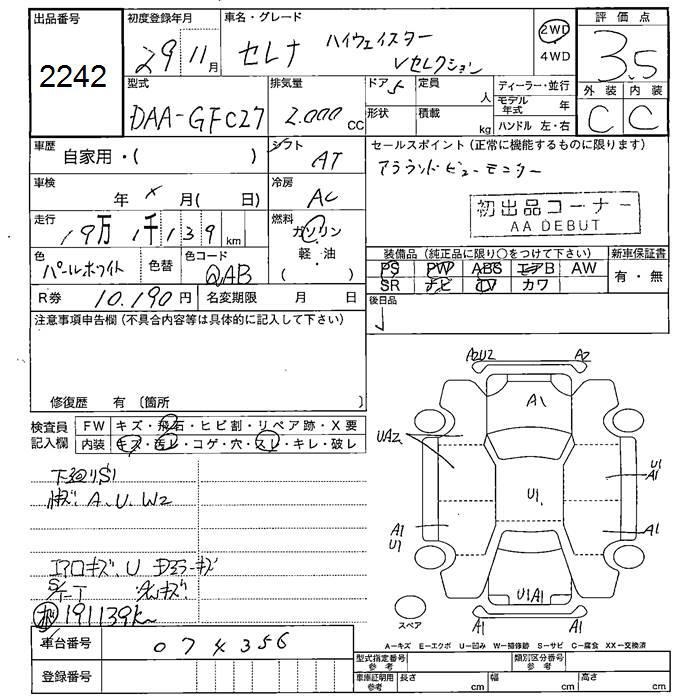 出品番号
2242
初度登録年月
29 11月
車名・グレード
セレナ ハイウェイスター
Vセレクション
2WD
4WD
評価点
3.5
外装 内装
C C
型式
DAA-GFC27
排気量
2.000 cc
ドア 5
定員 人
形状
積載 kg
ディーラー・並行
モデル年式 年
ハンドル 左・右
車歴
自家用・( )
シフト
AT
セールスポイント(正常に機能するものに限ります)
アラウンドビューモニター
初出品コーナー
AA DEBUT
車検
年 × 月( 日)
冷房
AC
走行
19万 1千 139 km
燃料
ガソリン
軽・油
( )
色
パールホワイト
色替
色コード
QAB
装備品(純正品に限り○をつけて下さい)
PS PW ABS エアB AW
SR ナビ TV カワ
新車保証書
有・無
R券 10.190円
名変期限 月 日
後日品
注意事項申告欄(不具合内容等は具体的に記入して下さい)
修復歴 有(箇所 )
検査員記入欄
FW キズ・飛石・ヒビ割・リペア跡・X要
内装 キズ・汚レ・コゲ・穴・スレ・キレ・破レ
下廻りS1
A.U.W2
エアロキズ.U ドアミラーキズ
191139km
車台番号 074356
登録番号
A2U2 A2
A1
UA2
U1
A1
U1
A1
U1
A1
A1
U1A1
A1 A1
スペア
A-キズ E-エクボ U-凹み W-補修跡 S-サビ C-腐食 XX-交換済
型式指定番号 参考
類別区分番号 参考
車庫証明用 参考
長さ cm
幅 cm
高さ cm